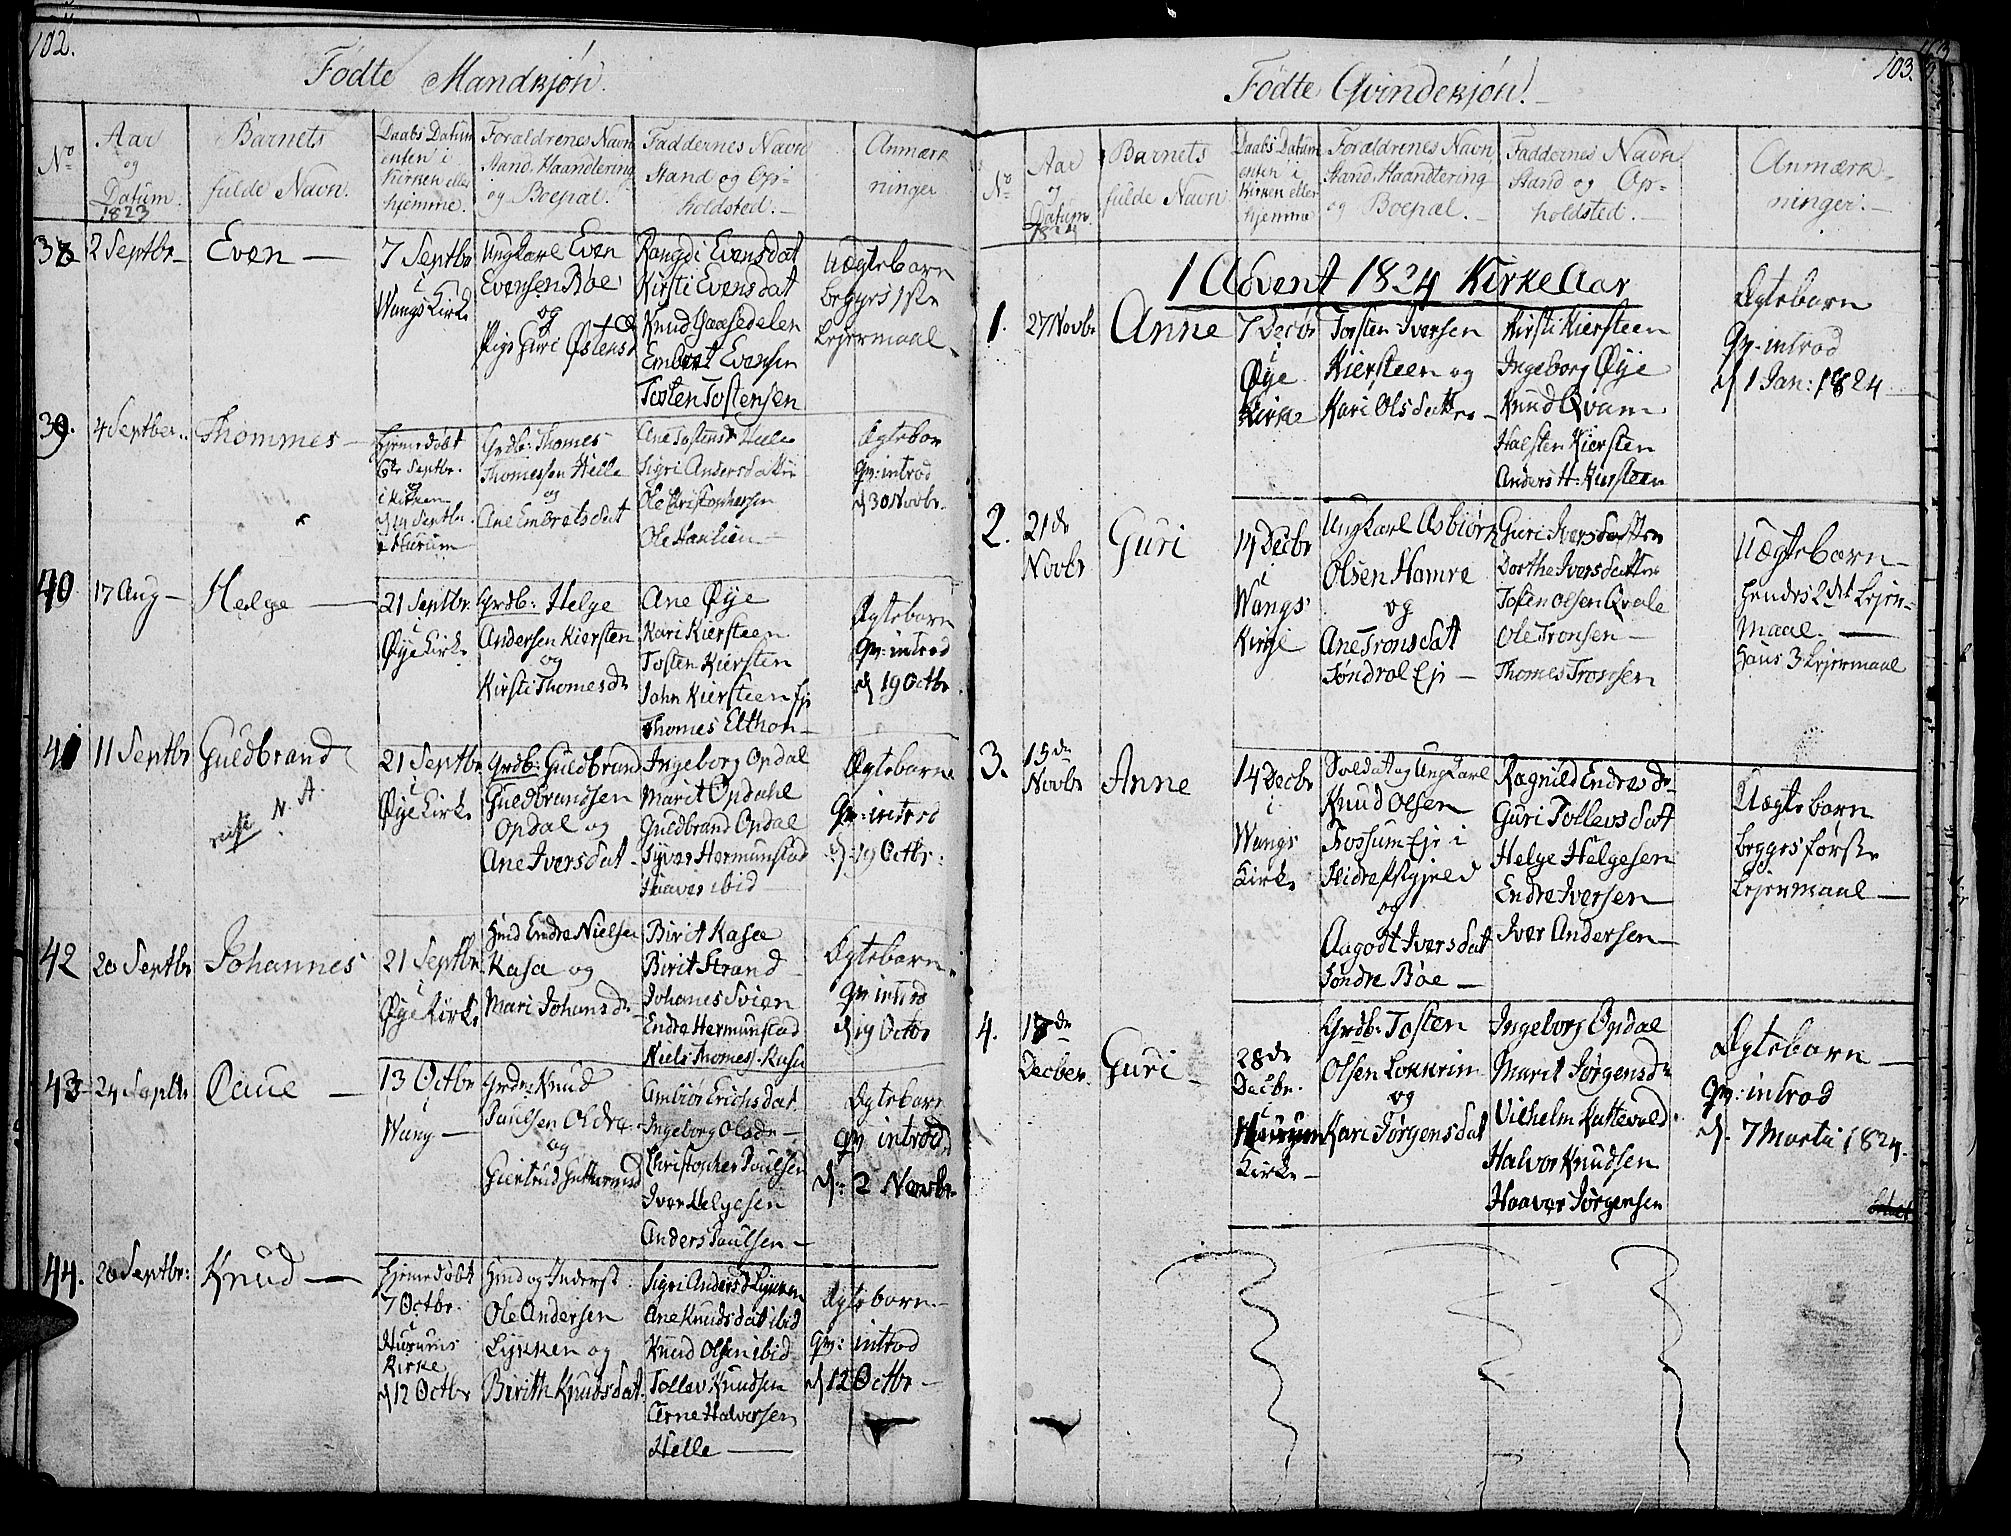 102.
Fødte Mandkjøn.
No
Aar
og
Datum.
1823
Barnets
fulde Navn.
Daabs Datum
enten i
Kirken eller
hjemme.
Forældrenes Navn
Stand, Haandtering
og Boepæl.
Faddernes Navn
Stand og Op-
holdsted.
Anmærk
ninger
38
2 Septbr
Even
7 Septbr
i
Wangs Kirke
Ungkarl Even
Evensen Bøe
og
Pige Guri Østensd
Rangdi Evensdat
Kirsti Evensdat
Knud Gaasedelen
Embret Evensen
Tosten Tostensen
Uægtebarn
begges 1ste
Lejermaal
39.
4 Septber
Thommes
Hjemedøbt
Septbr.
i Kirken
d 14 Septbr.
i Hurum
Grdb: Thomes
Thomessen Helle
og
Ane Embretsdat
Ane Tostensd Helle
Sigri Andersdatter
Ole Christophersen
Ole Haulien
Ægtebar
Qv: introd
d 30 Novbr.
40
17 Aug
Helge
21 Septbr
i
Øye Kirke
Grdb: Helge
Andersen Kiersten
og
Kirsti Thomesdr
Ane Øye
Kari Kiersteen
Tosten Kiersten
John Kiersteen Ejr
Thomes Elthon
Ægtebarn
Qv: introd
d 19 Octbr
41
11 Septbr
Guldbrand
reist N. A.
21 Septbr
i
Øye Kirke
Grdb: Guldbrand
Guldbrandsen
Opdal og
Ane Iversdat
Ingeborg Opdal
Marit Opdahl
Guldbrand Opdal
Syver Hermunstad
Haaver ibid
Ægtebarn
Qv: introd
d: 19 Octbr:
42
20 Septbr
Johannes
21 Septbr
i
Øye Kirke
Hmd Endre Nielsen
Kasa og
Mari Johansdr
Birit Kasa
Birit Strand
Johanes Svien
Endre Hermunstad
Niels Thomes. Kasa
Ægtebarn
Qv introd
d 19 Octbr
43
24 Septbr
Paul
13 Octbr
i
Wang
Grdr: Knud
Paulsen Oldre
og
Guirtrud Guttormsd
Ambiør Erichsdat
Ingeborg Olsdr
Christopher Paulsen
Iver Helgesen
Anders Paulsen
Ægtebarn
Qv introd
d: 2 Novbr
44.
20 Septbr:
Knud
Hjemedøbt
7 Octbr.
i
Hurums
Kirke
d 12 Octbr
Hmd og Inderst
Ole Andersen
Lykken og
Birith Knudsdat
Sigri Andersd Lykken
Ane Knudsdat ibid
Knud Olsen ibid
Tollev Knudsen
Arne Halversen
Helle
Ægtebarn
Qv: introd
d 12 Octbr
103.
Fødte Qvindekjøn.
No
Aar
og
Datum
1824
Barnets
fulde Navn
Daabs Datum
enten i
Kirken eller
hjemme
Forældrenes Navn
Stand, Haandtering
og Boepæl.
Faddernes Navn
Stand og Op-
holdsted.
Anmærk-
ninger.
1 Advent 1824 Kirke Aar
1.
27 Novbr
Anne
7 Decbr
i
Øye
Kirke
Tosten Iversen
Kiersteen og
Kari Olsdatter
Kirsti Kiersteen
Ingeborg Øye
Knud Qvam
Halsten Kiersten
Anders H: Kiersteen
Ægtebarn
Qv: introd
d 1 Jan: 1824
2.
21de
Novbr
Guri
14 Decbr
i
Wangs
Kirke
Ungkarl Asbiørn
Olsen Hamre
og
Ane Tronsdat
Søndrol Ejr
Guri Iversdatter
Dorthe Iversdatter
Tosten Olsen Qvale
Ole Tronsen
Thomes Tronsen
Uægtebarn
hendes 2det Lejer-
maal.
Hans 3 Lejermaal
3.
15de
Novbr
Anne
14 Decbr
i
Wangs
Kirke
Soldat og Ungkarl
Knud Olsen
Fossum Ejr i
Slidre Pstgjeld
og
Aagodt Iversdat
Søndre Bøe
Ragnild Endresdr
Guri Tollevsdatt
Helge Helgesen
Endre Iversen
Iver Andersen
Uægtebarn
begges første
Lejermaal
4.
18de
Decber
Guri
28de
Decbr.
i
Hurum
Kirke
Grdb: Tosten
Olsen Lokkrin
og
Kari Jørgensdat
Ingeborg Opdal
Marit Jørgensdr
Vilhelm Kattevold
Halvor Knudsen
Haaver Jørgensen
Ægtebarn
Qv: introd
d. 7 Martii 1824.